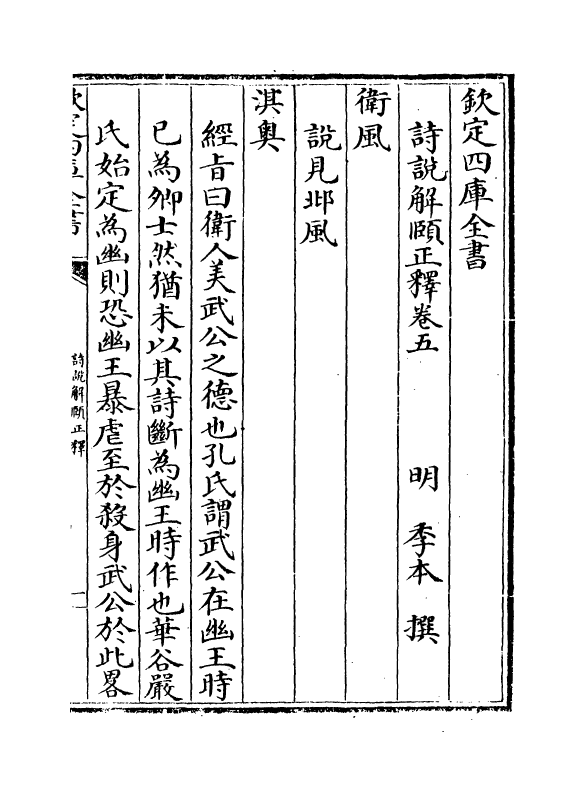 欽定四庫全書
詩說解頤正釋卷五　明　季本　撰
衛風
說見邶風
淇奧
經旨曰衛人美武公之德也孔氏謂武公在幽王時
已為卿士然猶未以其詩斷為幽王時作也華谷嚴
氏始定為幽則恐幽王暴虐至於殺身武公於此畧
欽定四庫全書
詩說解頤正釋
一